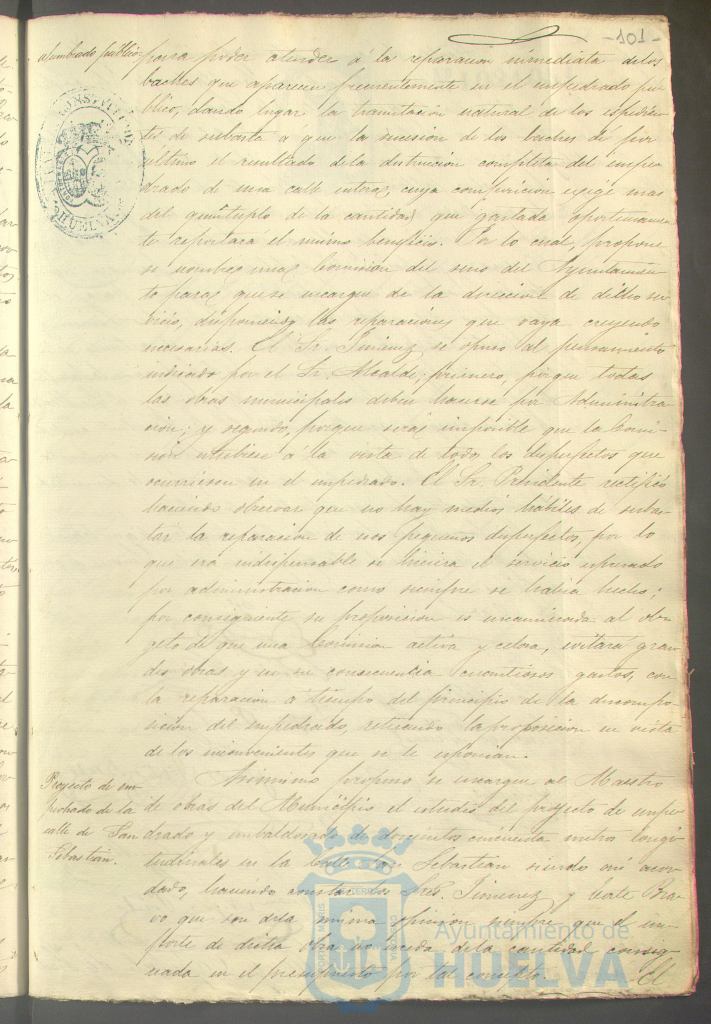 -101-
alumbrado público
para poder atender á la reparacion inmediata de los
baches que aparecen frecuentemente en el empedrado pú-
blico, dando lugar la tramitacion natural de los espedien-
tes de subasta a que la sucesion de los baches dé por
ultimo el resultado de la destruccion completa del empe-
drado de una calle entera, cuya composicion exige mas
del quintuplo de la cantidad que gastada oportunamen-
te reportara el mismo beneficio. Por lo cual, propone
se nombre una Comision del seno del Ayuntamien-
to para que se encargue de la direccion de dicho ser-
vicio, disponiendo las reparaciones que vaya creyendo
necesarias. El Sr. Jimenez se opuso al pensamiento
indicado por el Sr. Alcalde; primero, porque todas
las obras municipales deben hacerse por Administra-
cion; y segundo, porque seria imposible que la Comi-
sion estubiese á la vista de todos los desperfectos que
ocurriesen en el empedrado. El Sr. Presidente rectificó
haciendo observar que no hay medios hábiles de subas-
tar la reparacion de esos pequeños desperfectos, por lo
que era indispensable se hiciera el servicio espresado
por administracion como siempre se habia hecho;
por consiguiente su proposicion es encaminada al ob-
geto de que una Comision activa y celosa, evitara gran-
des obras y en su consecuencia cuantiosos gastos, con
la reparacion a tiempo del principio de la descompo-
sicion del empedrado, retirando la proposicion en vista
de los inconvenientes que se le esponian.
Proyecto de em-
pedrado de la
calle de San
Sebastian.
Asimismo propuso se encargue al Maestro
de obras del Municipio el estudio del proyecto de empe-
drado y embaldosado de doscientos cincuenta metros longi-
tudinales en la Calle San Sebastian siendo asi acor-
dado, haciendo constar los Sres. Jimenez y Bra-
vo que son de la misma opinion siempre que el im-
porte de dicha obra no esceda de la cantidad consig-
nada en el presupuesto por tal concepto. El
HUELVA
Ayuntamiento de
HUELVA